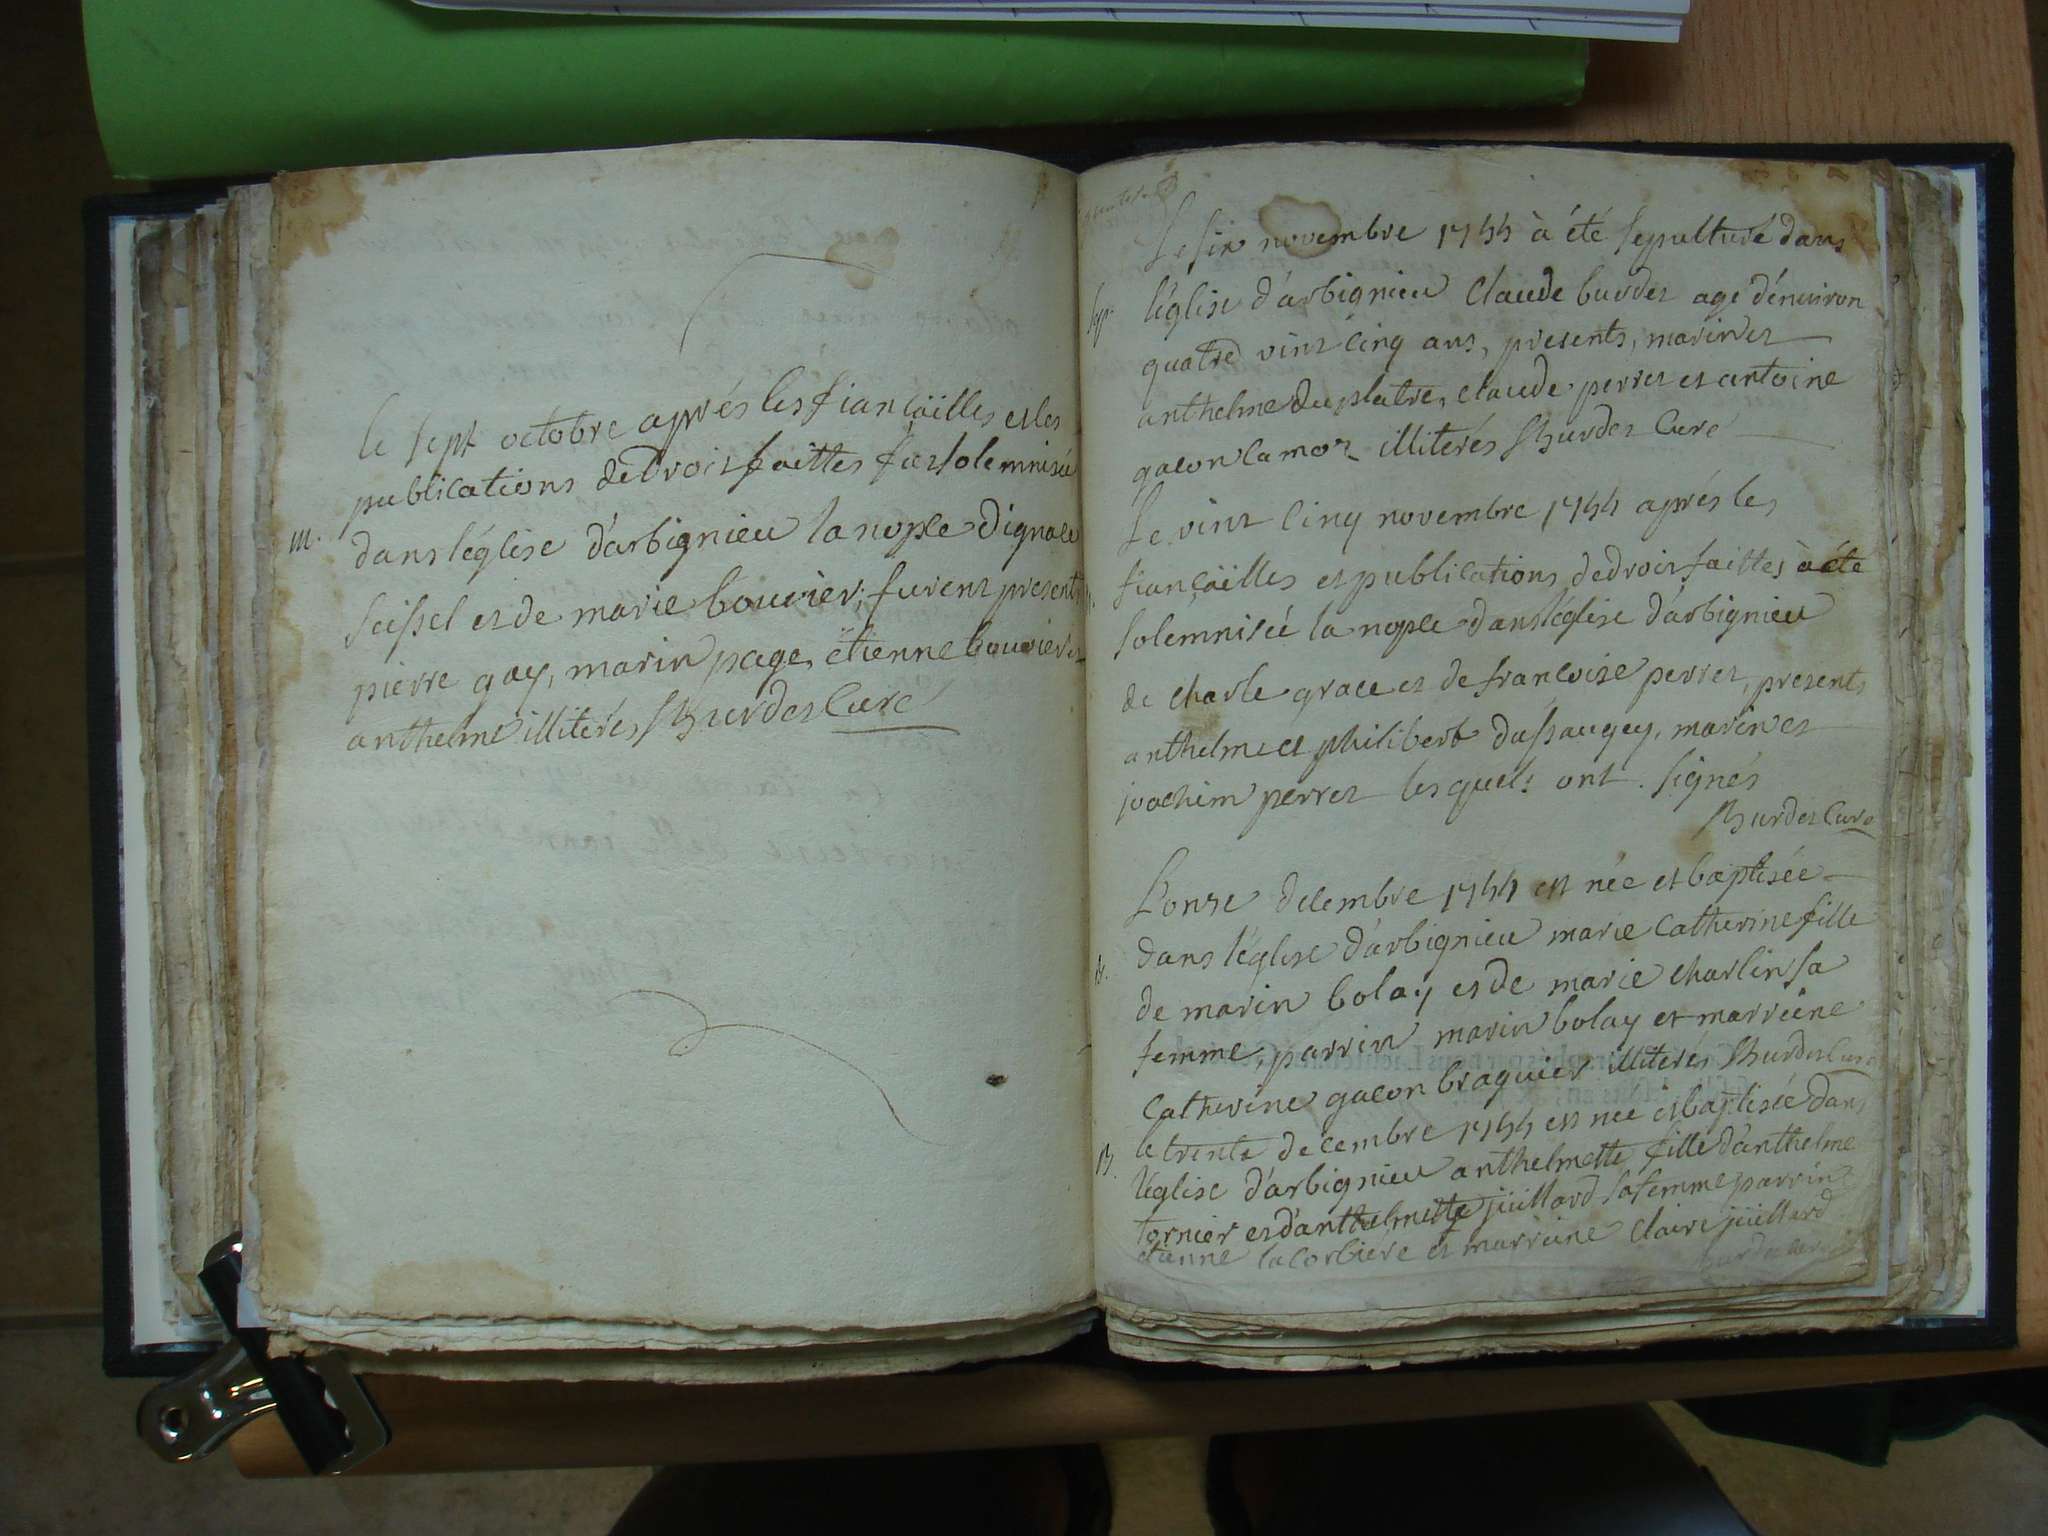 m.
le sept octobre aprés les fiançäilles et les
publications de droit faittes fut solemnisée
dans l'église d'arbignieu la nopce d'ignace
seissel et de marie bouvier, furent presents
pierre gay, marin page, étienne bouvier et
anthelme illiterés Burdet Curé
Le six novembre 1744 à été sepulturé dans
sep.
l'église d'arbignieu Claude burdet agé d'environ
quatre vint cinq ans, presents, marin et
anthelme duplatre, claude perret et antoine
gacon camoz illiterés Burdet Curé
Le vint cinq novembre 1744 aprés les
fiançäilles et publications de droit faittes à été
solemnisée la nopce dans l'église d'arbignieu
de charle grace et de francoise perret, presents
anthelme et philibert dussaugey, marin et
joachim perret lesquels ont signés
Burdet Curé
L'onze decembre 1744 est née et baptisée
dans l'église d'arbignieu marie Catherine fille
B.
de marin bolay et de marie charlin sa
femme, parrin marin bolay et marreine
Catherine gacon braquier illiterés Burdet Curé
B.
le trente decembre 1744 est née et baptisée dans
l'église d'arbignieu anthelmette fille d'anthelme
tornier et d'anthelmette jüillard sa femme parrin
étienne la Corbiere et marreine Claire jüillard
burdet curé